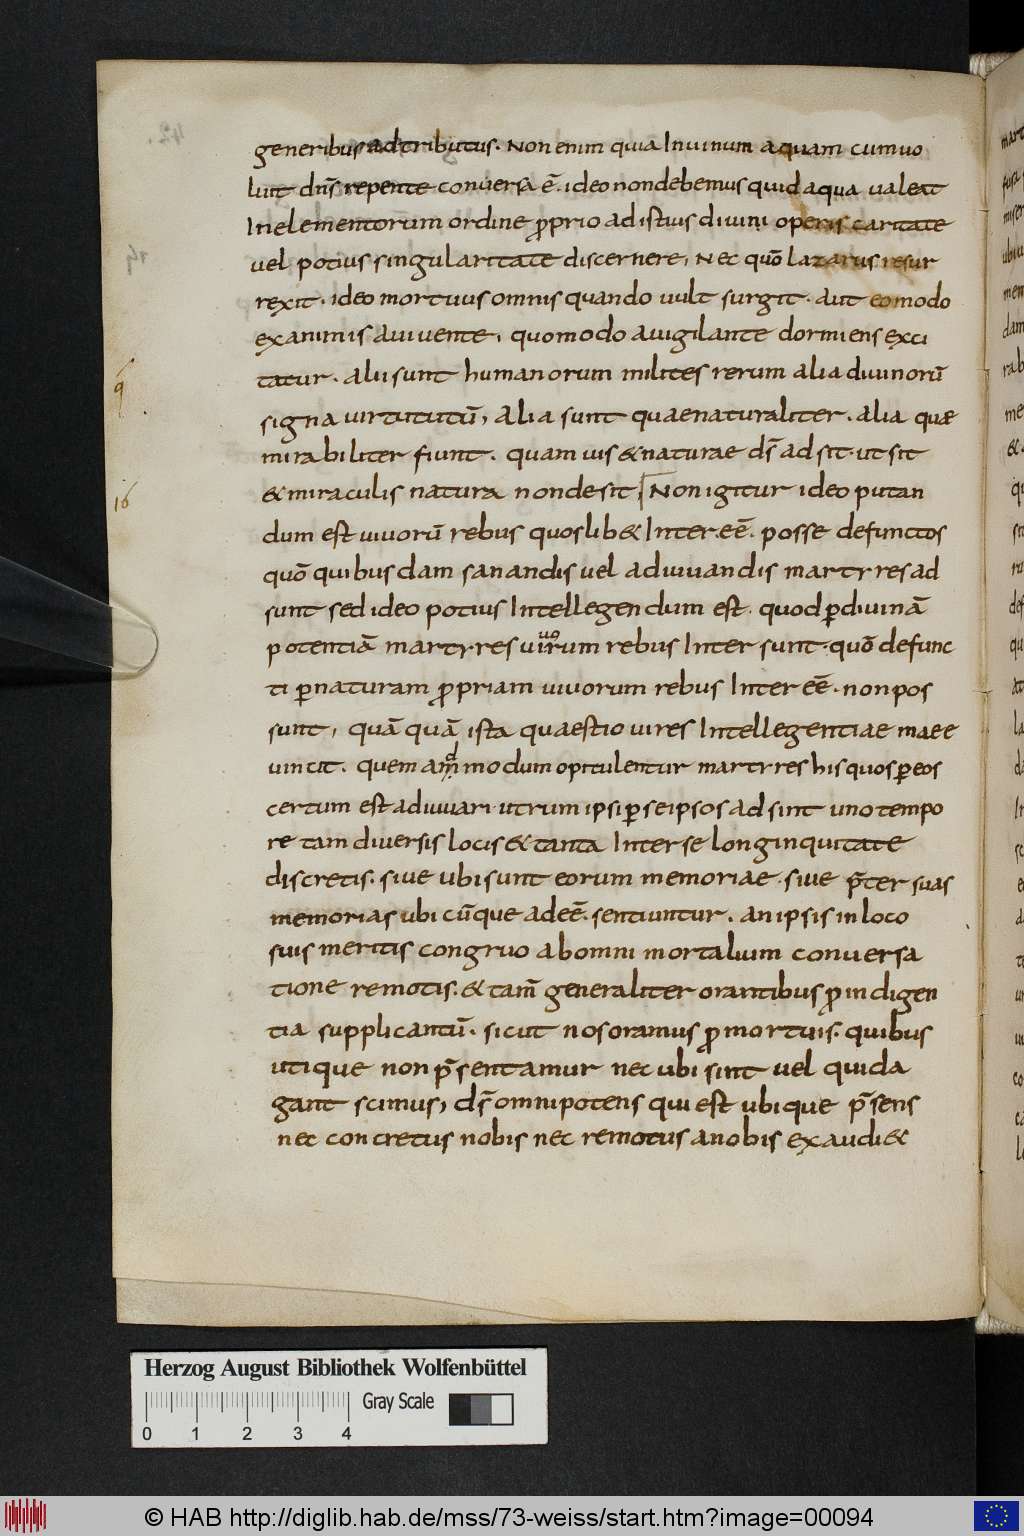 generibus adtributus. Non enim quia In uinum aquam cum uo
luit dn̄s repente conuersa ē. ideo non debemus quid aqua ualeat
In elementorum ordine ꝓprio ad istius diuini operis caritate
uel potius singularitate discernere, Nec quō lazarus resur
rexit. ideo mortuus omnis quando uult surgit. aut eo modo
exanimis a uiuente, quomodo a uigilante dormiens exci
tatur. alii sunt humanorum milites rerum alia diuinorū
signa uirtututū, alia sunt quae naturaliter. alia quae
mirabiliter fiunt. quam uis & naturae ds̄ adsit. ut sit
& miraculis natura non desit, Non igitur ideo putan
dum est uiuorū rebus quoslib& Inter.eē. posse defunctos
quō quibusdam sanandis uel adiuuandis martyres ad
sunt sed ideo potius Intellegendum est. quod ꝑ diuinā
potentiā martyres uiuorum rebus Inter sunt. quō defunc
ti ꝑ naturam ꝓpriam uiuorum rebus Inter eē. non pos
sunt, quāquā ista quaestio uires Intellegentiae mae e
uincit. quem ad modum opitulentur martyres his quos ꝑ eos
certum est adiuuari. utrum ipsi ꝑ se ipsos adsint uno tempo
re tam diuersis locis & tanta Inter se longinquitate
discretis. siue ubi sunt eorum memoriae. siue p̄ter suas
memorias ubi cūque adeē. sentiuntur. an ipsis in loco
suis meritis congruo ab omni mortalium conuersa
tione remotis. & tam̄ generaliter orantibus ꝓ indigen
tia supplicantū. sicut nos oramus ꝓ mortuis. quibus
utique non p̄sentamur nec ubi sint uel quid a
gant scimus, ds̄ omnipotens qui est ubique p̄sens
nec concretus nobis nec remotus a nobis exaudi&
16
Herzog August Bibliothek Wolfenbüttel
Gray Scale
0 1 2 3 4
© HAB http://diglib.hab.de/mss/73-weiss/start.htm?image=00094